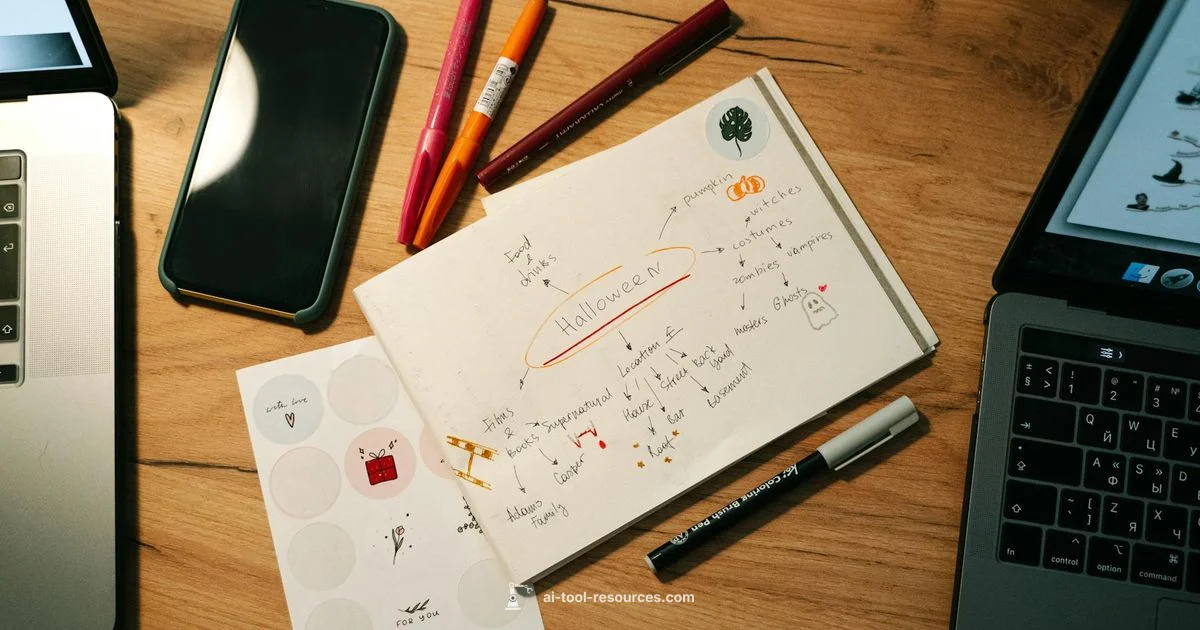 pumpkin
witches
costumes
vampires
zombies
Ghosts
Food
&
drinks
Halloween
Location
Back
yard
Street
House
Bar
Basement
Roof
Films
&
Books
Supernatural
Casper
Adams
Family
with love
FOR YOU
Coloring Brush Pen
ai-tool-resources.com
fn
control
option
command